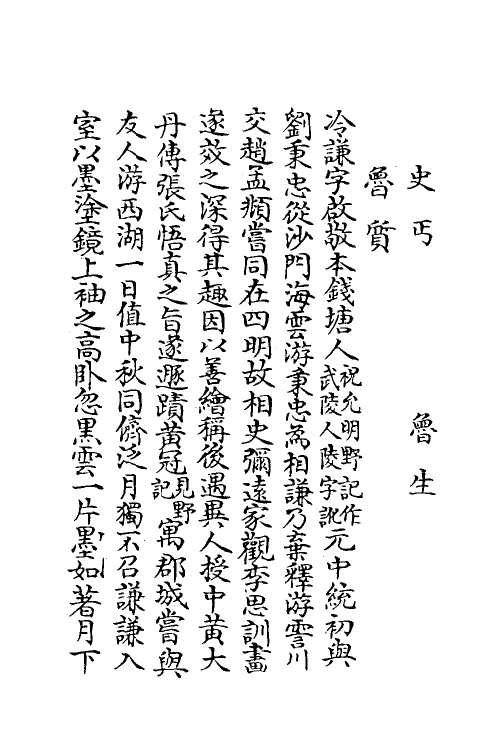 史丐　魯生
魯質
冷謙字啟敬本錢塘人祝允明野記作武陵人陵字訛元中統初與
劉秉忠從沙門海雲游秉忠為相謙乃棄釋游霅川
交趙孟頫嘗同在四明故相史彌遠家觀李思訓畫
遂效之深得其趣因以善繪稱後遇異人授中黃大
丹傳張氏悟真之旨遂遯蹟黃冠見野記寓郡城嘗與
友人游西湖一日值中秋同儕泛月獨不召謙謙入
室以墨塗鏡上袖之高臥忽黑雲一片墨如著月下